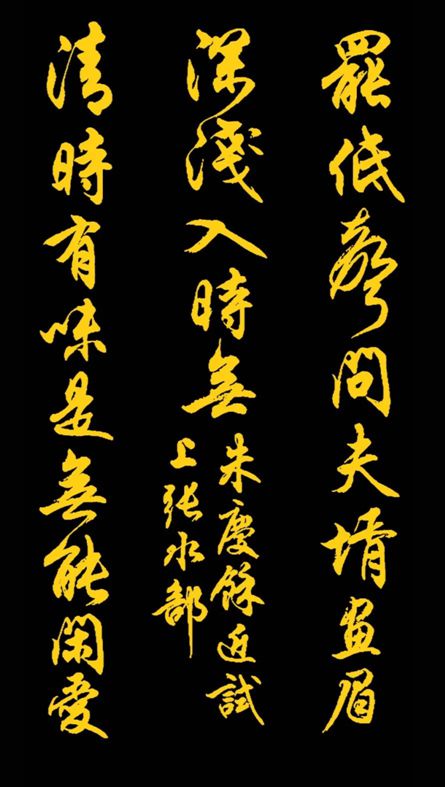 罷低聲問夫壻畫眉
深淺入時無
朱慶餘近試
上张水部
清時有味是無能閑愛